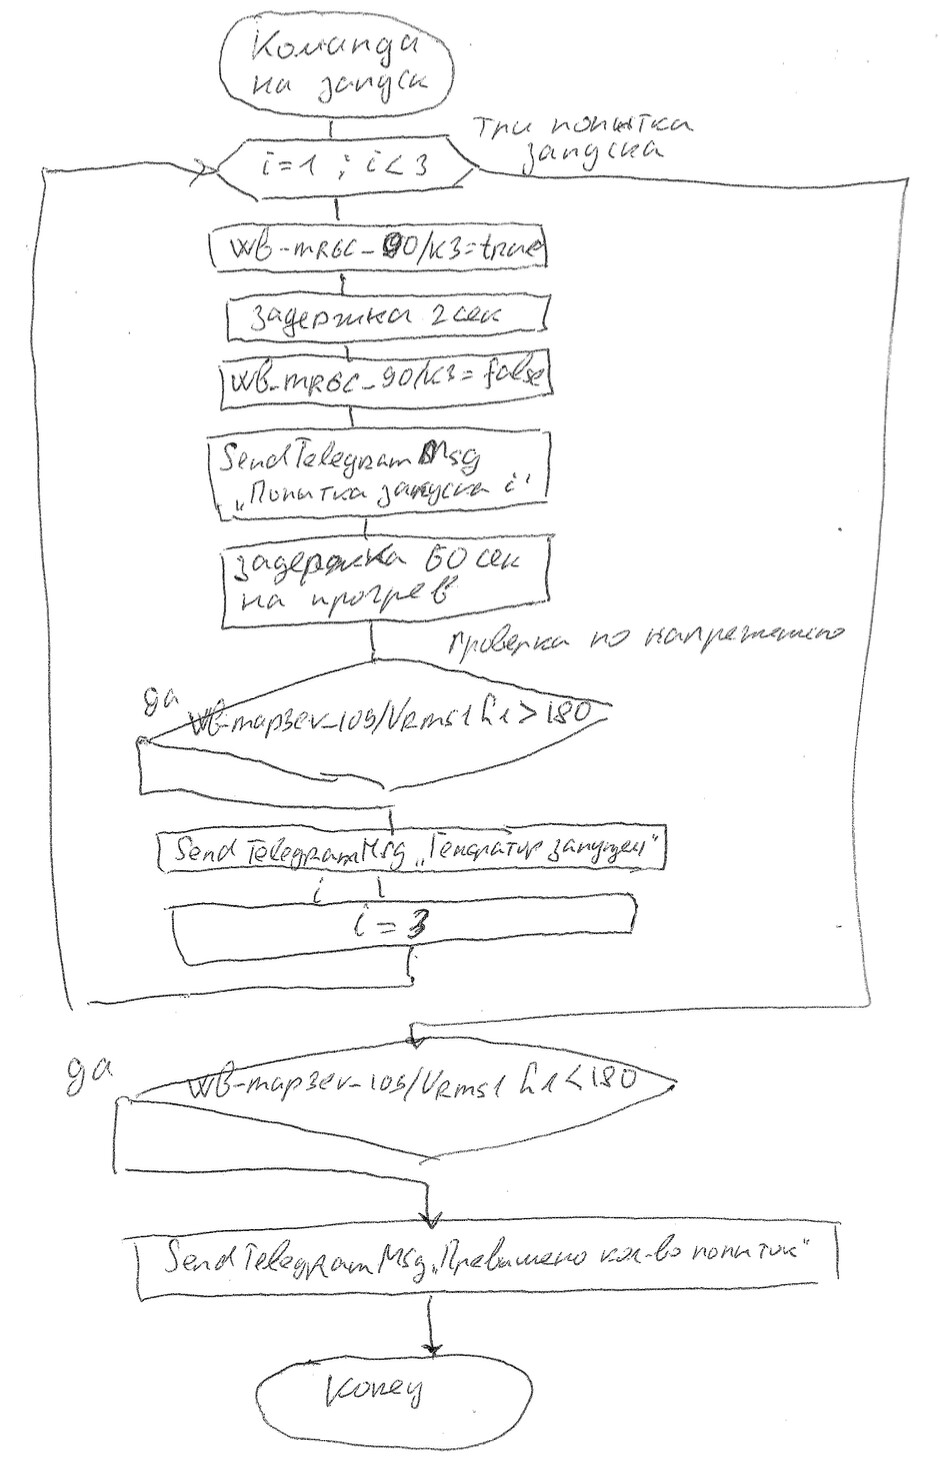 Команда
на запуск
три попытка
запуска
i=1 ; i<3
wb-mR6C_90/K3=true
Задержка 2 сек
wb-mR6C_90/K3=false
SendTelegramMsg
„Попытка запуска i"
задержка 60 сек
на прогрев
проверка по напряжению
да
wb-map3ev_109/VRms1 L1>180
SendTelegramMsg „Генератор запущен"
i = 3
да
wb-map3ev_109/VRms1 L1<180
SendTelegramMsg „Превышено кол-во попыток"
Конец